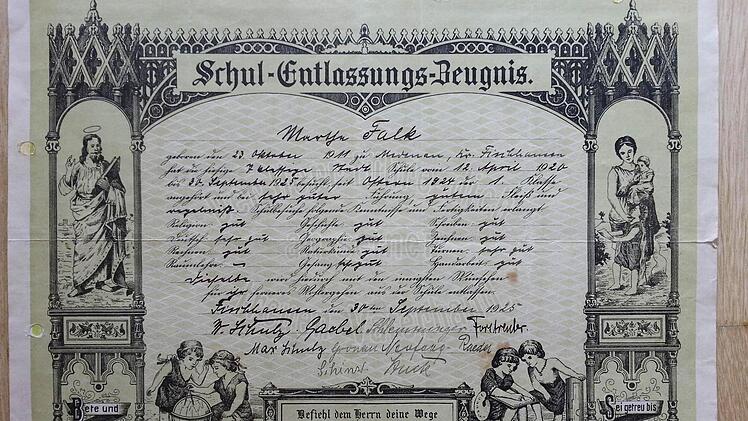 Schul-Entlassungs-Zeugnis.
Martha Falk
geboren den 23 Oktober 1911 zu Medenau, Kr. Fischhausen
hat die hiesige 7 klassige Stadt Schule vom 12. April 1920
bis 30. September 1925 besucht, seit Ostern 1924 der 1. Klasse
angehört und bei sehr guter Führung, gutem Fleiß und
regelmäß. Schulbesuche folgende Kenntnisse und Fertigkeiten erlangt:
Religion gut Geschichte gut Schreiben gut
Deutsch sehr gut Geographie gut Zeichnen gut
Rechnen gut Naturkunde gut Turnen sehr gut
Raumlehre — Gesang sehr gut Handarbeit gut
Dieselbe wird hierdurch mit den innigsten Wünschen
für ihr ferneres Wohlergehen aus der Schule entlassen.
Fischhausen den 30ten September 1925
W. Schulz Gaebel
Max Schulz
Bete und
Befiehl dem Herrn deine Wege
Sei getreu bis